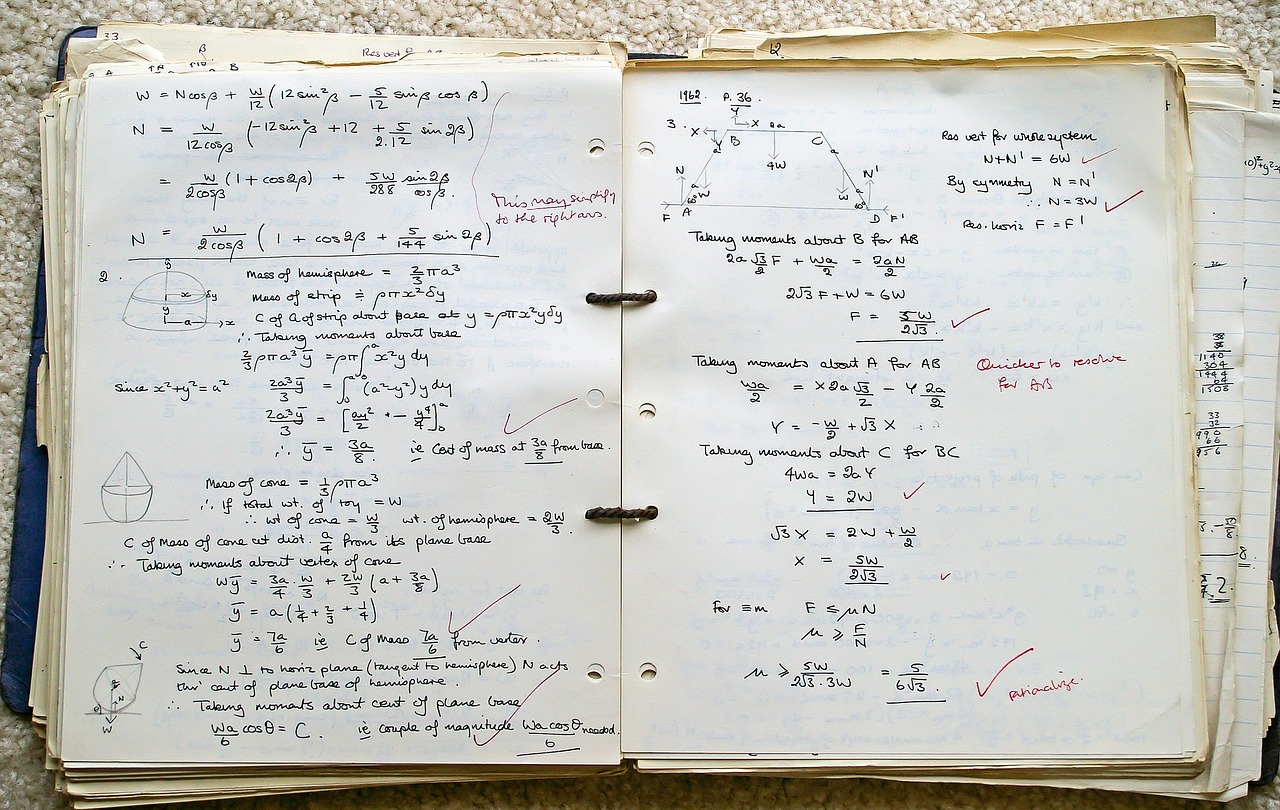 33.
β
Res vert
B
W = Ncosβ + W/12 (12 sin²β − 5/12 sinβ cosβ)
N = W/12cosβ (−12sin²β + 12 + 5/2.12 sin 2β)
= W/2cosβ (1 + cos2β) + 5W/288 sin2β/cosβ.
This may simplify
to the right ans.
N = W/2cosβ (1 + cos 2β + 5/144 sin 2β)
2.
y
x δy
y
a x
Mass of hemisphere = 2/3 πa³
Mass of strip ≑ ρπx²δy
C of G of strip about base at y = ρπx²yδy
∴ Taking moments about base
2/3 ρπa³ȳ = ρπ∫₀ᵃ x²y dy
Since x²+y²=a² 2a³ȳ/3 = ∫₀ᵃ (a²−y²)y dy
2a³ȳ/3 = [ay²/2 − y⁴/4]₀ᵃ
∴ ȳ = 3a/8 ie Cent of mass at 3a/8 from base.
Mass of cone = 1/3 ρπa³
∴ If total wt. of toy = W
∴ wt of cone = W/3 wt. of hemisphere = 2W/3.
C of Mass of cone at dist. a/4 from its plane base
∴ Taking moments about vertex of cone
Wȳ = 3a/4 · W/3 + 2W/3 (a + 3a/8)
ȳ = a(1/4 + 2/3 + 1/4)
ȳ = 7a/6 ie C of Mass 7a/6 from vertex.
C
N
θ
W
Since N ⊥ to horiz plane (tangent to hemisphere) N acts
thro' cent of plane base of hemisphere.
∴ Taking moments about cent of plane base
Wa/6 cosθ = C. ie couple of magnitude Wa cosθ/6 needed.
12.
1962. P. 36.
3.
Y
X X 2a
Y B C
a a
4W
N N'
a W W a
60° 60°
F A D F'
Res vert for whole system
N+N' = 6W
By symmetry N = N'
∴ N = 3W
Res. horiz F = F'
Taking moments about B for AB
2a √3/2 F + Wa/2 = 2aN/2
2√3 F + W = 6W
F = 5W/2√3.
Taking moments about A for AB
Quicker to resolve
for AB
Wa/2 = X 2a √3/2 − Y 2a/2
Y = −W/2 + √3 X
Taking moments about C for BC
4Wa = 2aY
Y = 2W
√3 X = 2W + W/2
X = 5W/2√3
For ≡m F ≤ μN
μ ≥ F/N
μ ≥ 5W/2√3.3W = 5/6√3.
rationalize.
38
38
1140
304
1444
64
1508
33
32
990
66
956
8.
2.